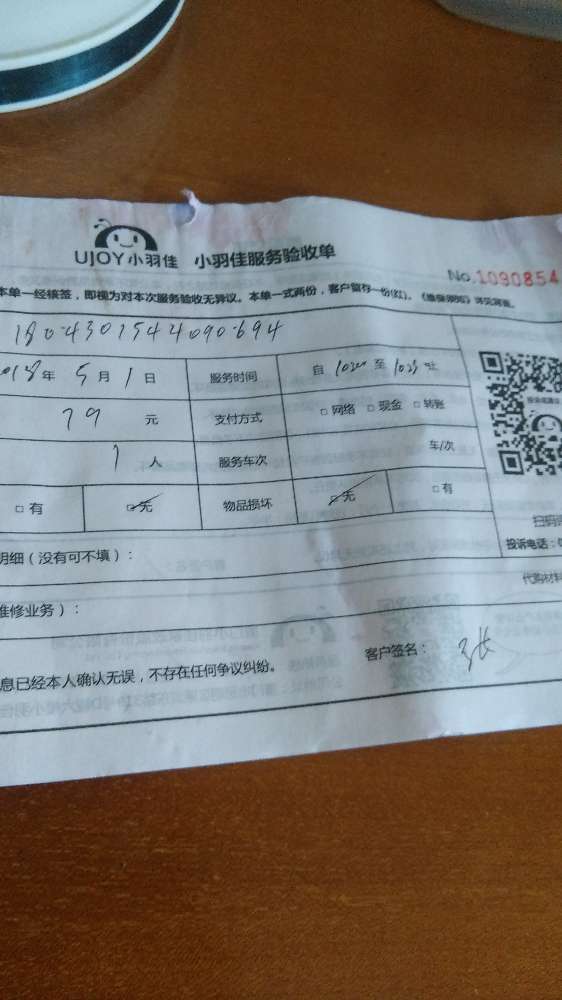 UJOY小羽佳 小羽佳服务验收单
No.1090854
本单一经核签，即视为对本次服务验收无异议。本单一式两份，客户留存一份(红)。
1804301544090694
018年 5月1日 服务时间 自 至
79 元 支付方式 □ 网络 □ 现金 □ 转账
1 人 服务车次 车/次
□ 有 □ 无 物品损坏 □ 无 □ 有
扫码
明细（没有可不填）： 投诉电话：0
代购材料
维修业务）：
息已经本人确认无误，不存在任何争议纠纷。 客户签名：